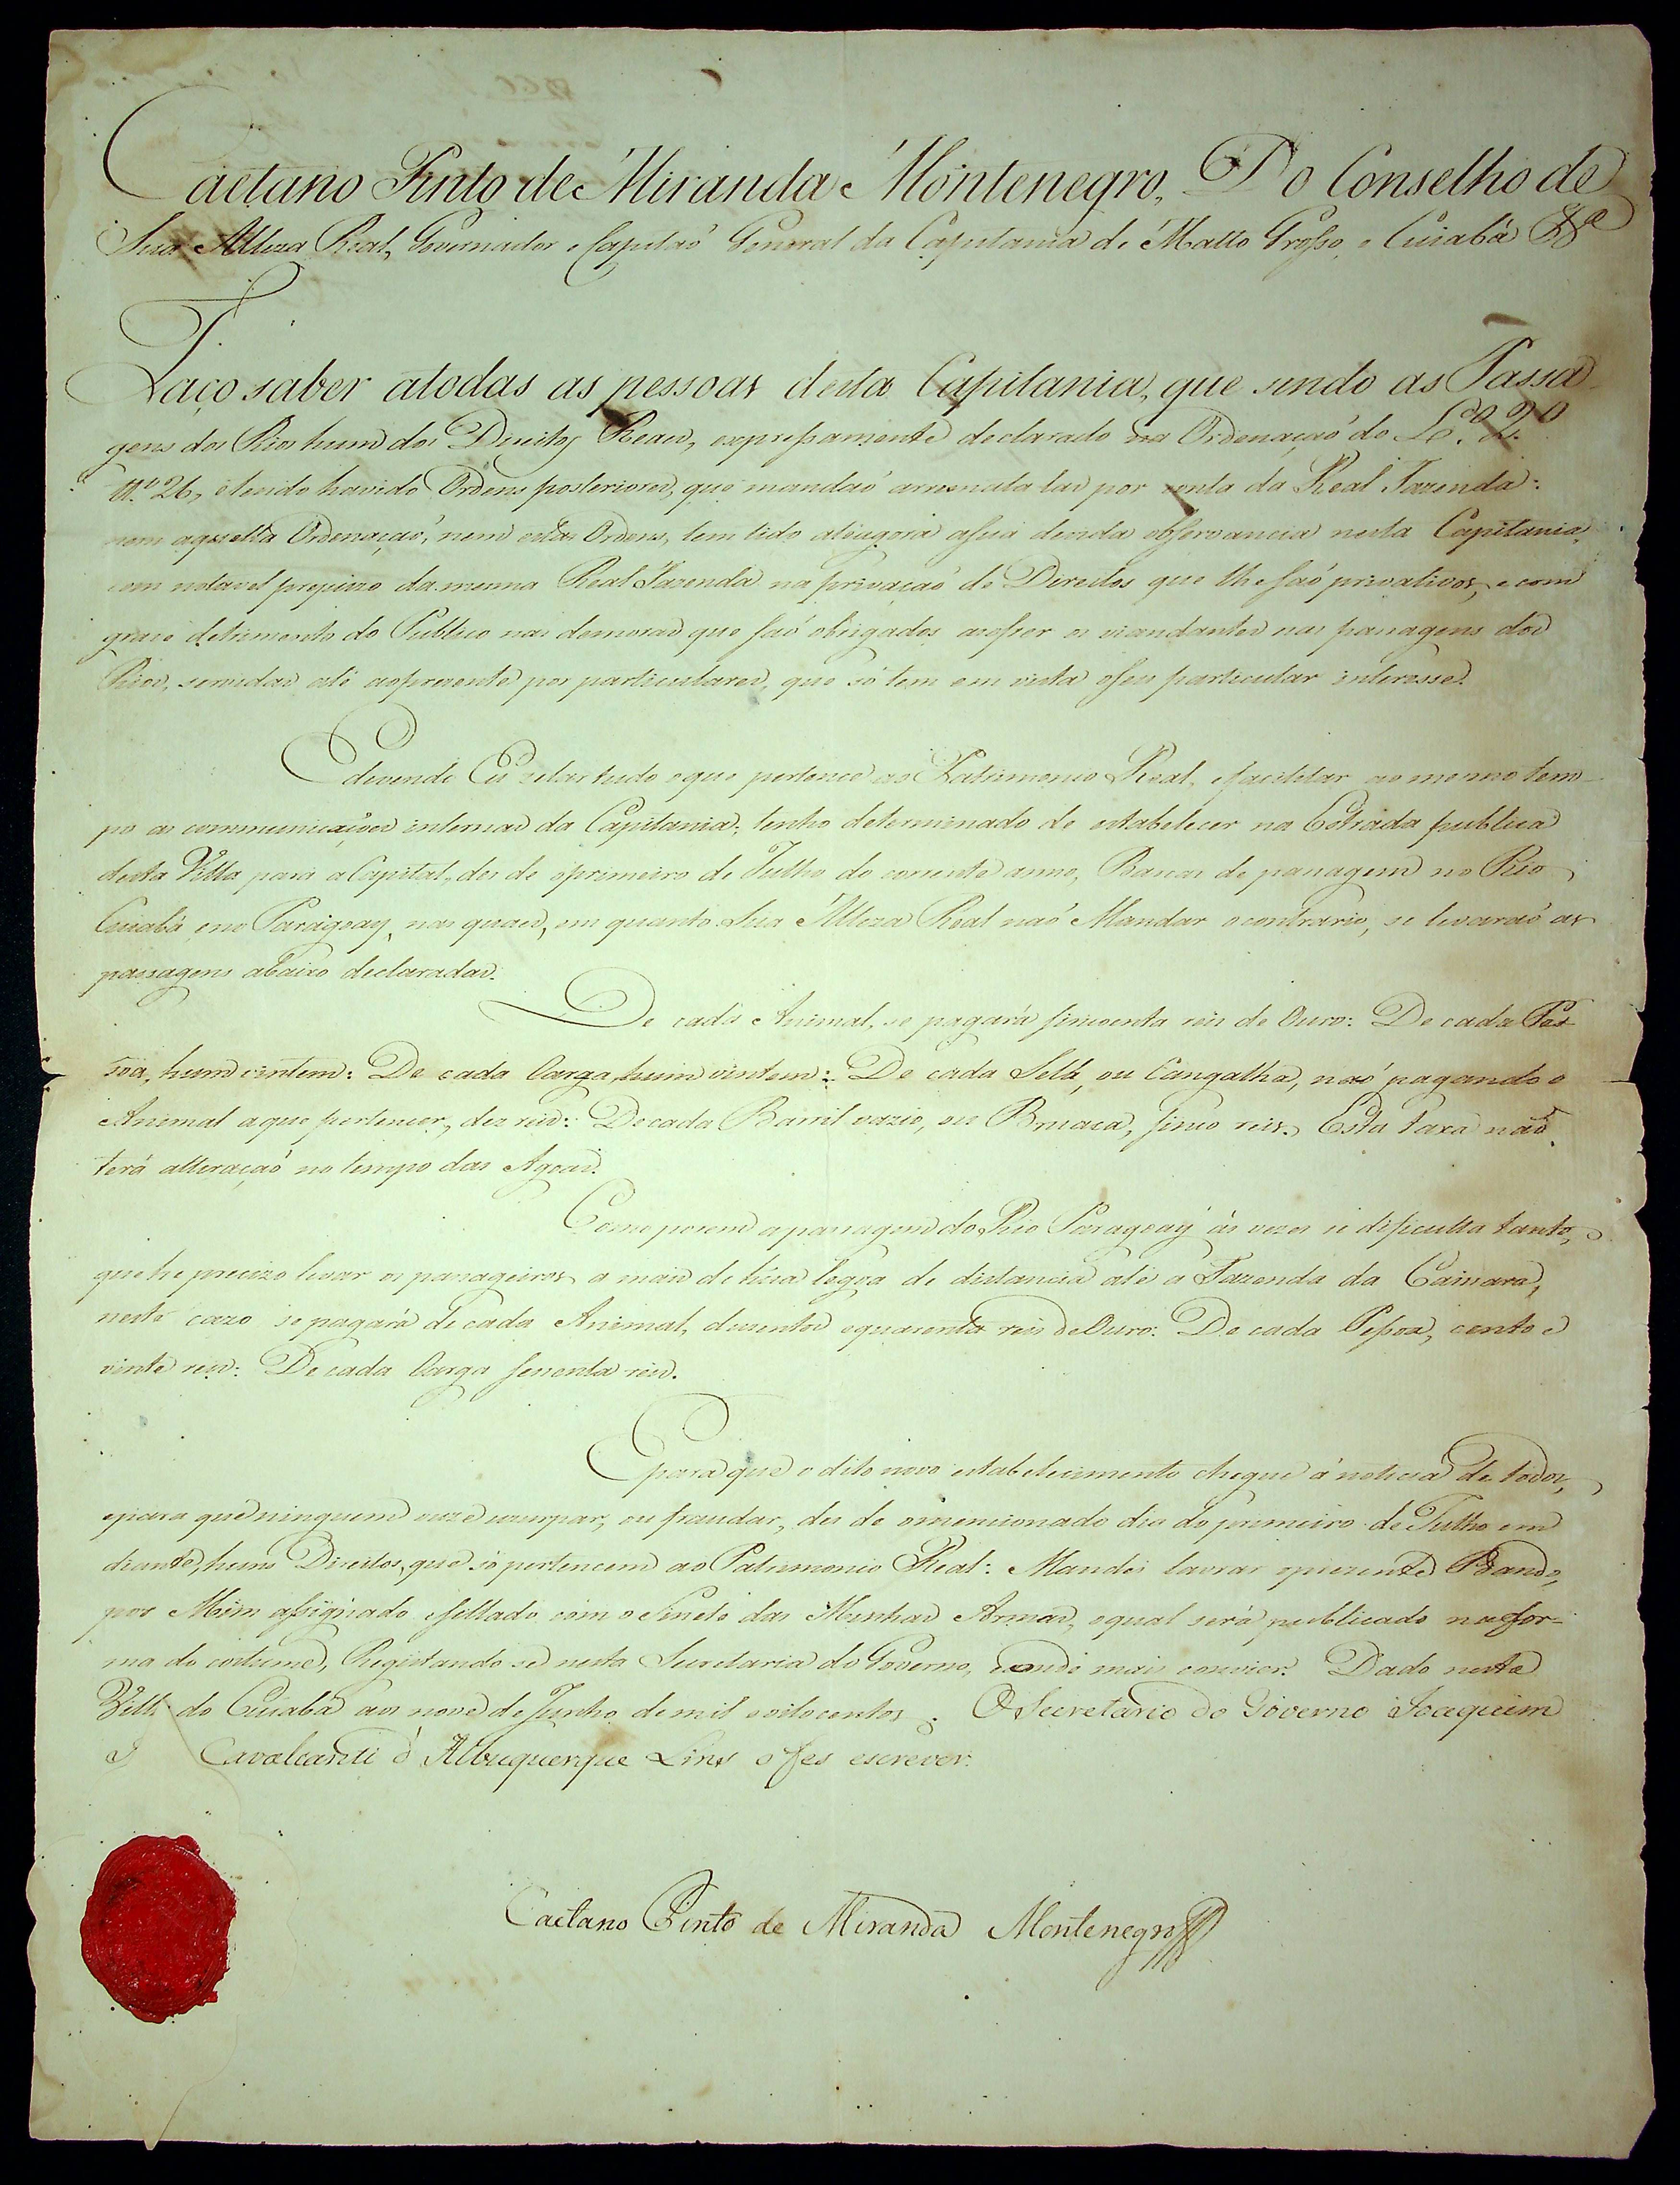 Caetano Pinto de Miranda Montenegro, Do Conselho de
Sua Alteza Real, Governador e Capitaõ General da Capitania de Matto Grosso, e Cuiabá &c
Faço saber atodas as pessoas desta Capitania, que sendo as Passa-
gens dos Rios hum dos Direitos Reaes, expressamente declarado na Ordenaçaõ do L.º 2.º
tt.º 26, e tendo havido Ordens posteriores, que mandaõ arrematalas por conta da Real Fazenda:
nem aquella Ordenaçaõ, nem estas Ordens, tem tido athégora asua devida observancia nesta Capitania,
com notavel prejuizo da mesma Real Fazenda na privaçaõ de Direitos que lhe saõ privativos, e com
grave detrimento do Publico nas demoras que saõ obrigados asofrer os viandantes nas passagens dos
Rios, servidas até aopresente por particulares, que só tem em vista oseu particular interesse.
E devendo Eu zelar tudo oque pertence ao Patrimonio Real, efacilitar ao mesmo tem-
po as communicações internas da Capitania; tenho determinado de estabelecer na Estrada publica
desta Villa para a Capital, des de oprimeiro de Julho do corrente anno, Barcas de passagem no Rio
Cuiabá, eno Paraguay, nas quaes, em quanto Sua Alteza Real naõ Mandar ocontrario, se levaraõ as
passagens abaixo declaradas.
De cada Animal, se pagará sincoenta reis de Ouro: De cada Pes-
soa, hum vintem: De cada Carga, hum vintem: De cada Sella, ou Cangalha, naõ pagando o
Animal aque pertencer, des reis: De cada Barril vazio, ou Bruaca, sinco reis. Esta taxa naõ
terá alteraçaõ no tempo das Agoas.
Como porem apassagem do Rio Paraguay ás vezes se dificulta tanto,
que he precizo levar os passageiros a mais de huã legoa de distancia até a Fazenda da Caissara,
neste cazo se pagará de cada Animal, duzentos equarenta reis de Ouro: De cada Pessoa, cento e
vinte reis: De cada Carga sessenta reis.
E para que o dito novo estabelecimento chegue á noticia de todos,
epara que ninguem ouze uzurpar, ou fraudar, des de omencionado dia do primeiro de Julho em
diante, huns Direitos, que só pertencem ao Patrimonio Real: Mandei lavrar oprezente Bando,
por Mim assignado esellado com o Sinete das Minhas Armas, oqual será publicado na for-
ma do costume, Registando se nesta Secretaria do Governo, eonde mais convier. Dado nesta
Villa do Cuiabá aos nove de Junho de mil eoitocentos. O Secretario do Governo Joaquim
J Cavalcanti d'Albuquerque Lins o fes escrever.
Caetano Pinto de Miranda Montenegro